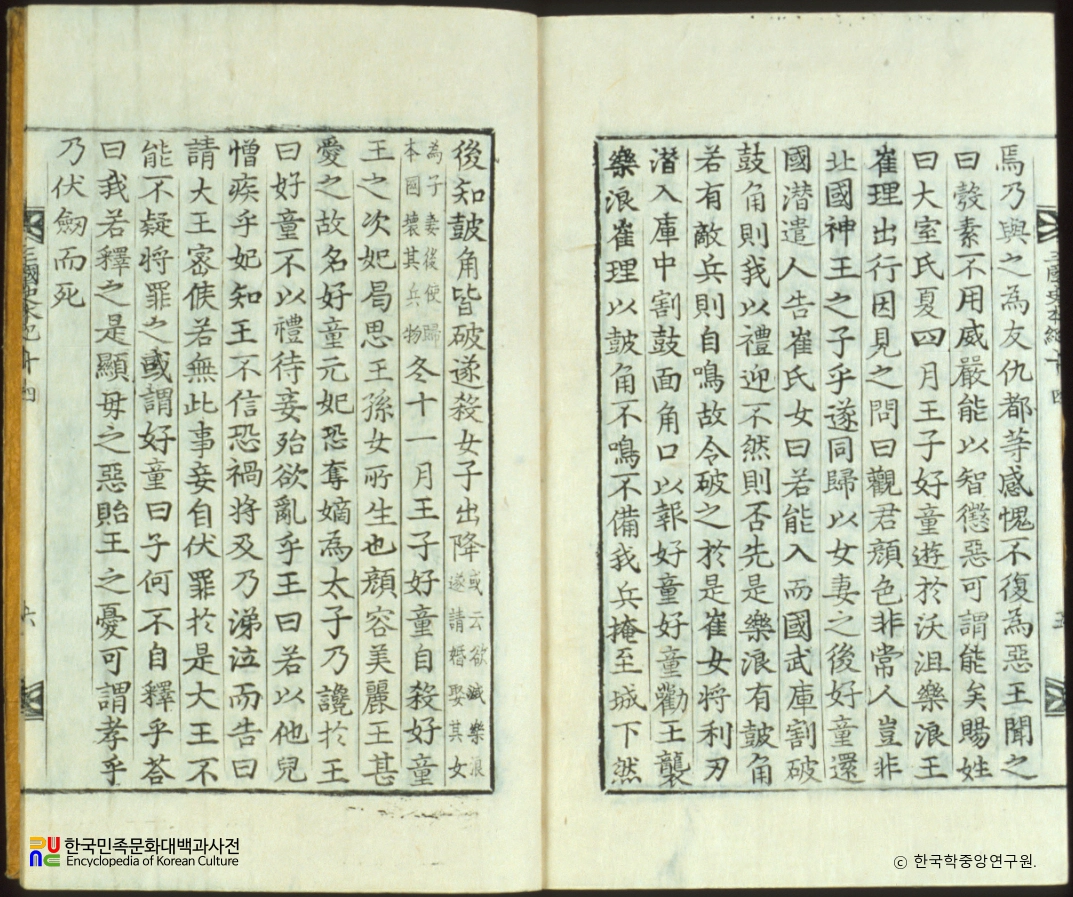 三國史本紀十四
五
焉乃與之為友仇都等感愧不復為惡王聞之
曰㪍素不用威嚴能以智懲惡可謂能矣賜姓
曰大室氏夏四月王子好童遊於沃沮樂浪王
崔理出行因見之問曰觀君顏色非常人豈非
北國神王之子乎遂同歸以女妻之後好童還
國潛遣人告崔氏女曰若能入而國武庫割破
鼓角則我以禮迎不然則否先是樂浪有鼓角
若有敵兵則自鳴故令破之於是崔女將利刃
潛入庫中割鼓面角口以報好童好童勸王襲
樂浪崔理以鼓角不鳴不備我兵掩至城下然
後知鼓角皆破遂殺女子出降或云欲滅樂浪遂請婚娶其女
為子妻後使歸本國壞其兵物冬十一月王子好童自殺好童
王之次妃曷思王孫女所生也顏容美麗王甚
愛之故名好童元妃恐奪嫡為太子乃讒於王
曰好童不以禮待妾殆欲亂乎王曰若以他兒
憎疾乎妃知王不信恐禍將及乃涕泣而告曰
請大王密候若無此事妾自伏罪於是大王不
能不疑將罪之或謂好童曰子何不自釋乎荅
曰我若釋之是顯母之惡貽王之憂可謂孝乎
乃伏劒而死
三國史本紀十四
六
한국민족문화대백과사전
Encyclopedia of Korean Culture
© 한국학중앙연구원.